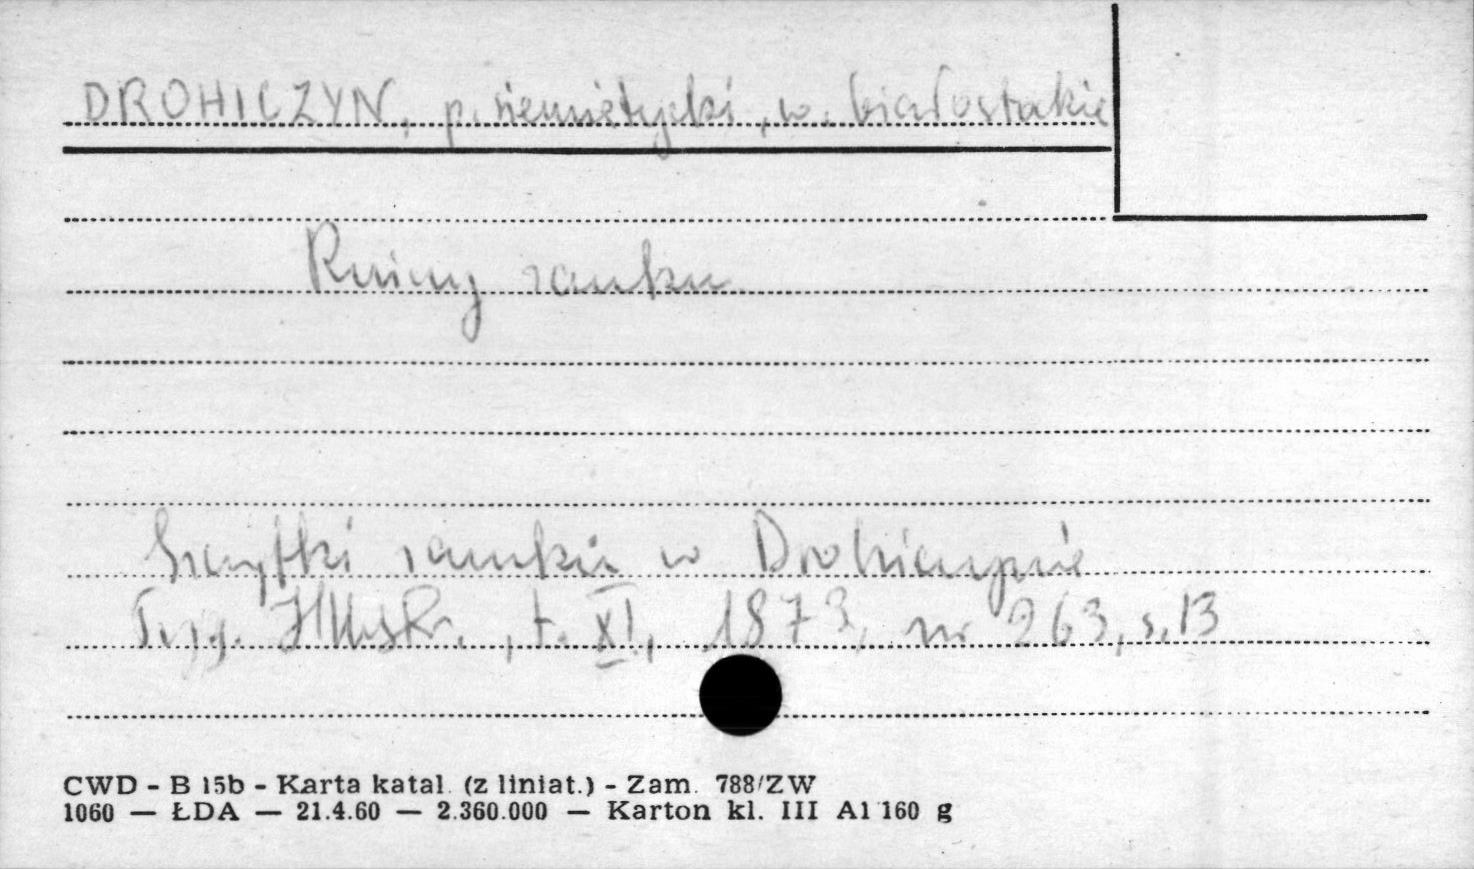 DROHICZYN, p. siemiatycki, w. białostockie
Ruiny zamku
zamku w Drohiczynie
Tyg. Illustr., t. XI, 1873, nr 263, s. 13
CWD - B 15b - Karta katal. (z liniat.) - Zam. 788/ZW
1060 — ŁDA — 21.4.60 — 2.360.000 — Karton kl. III A1 160 g